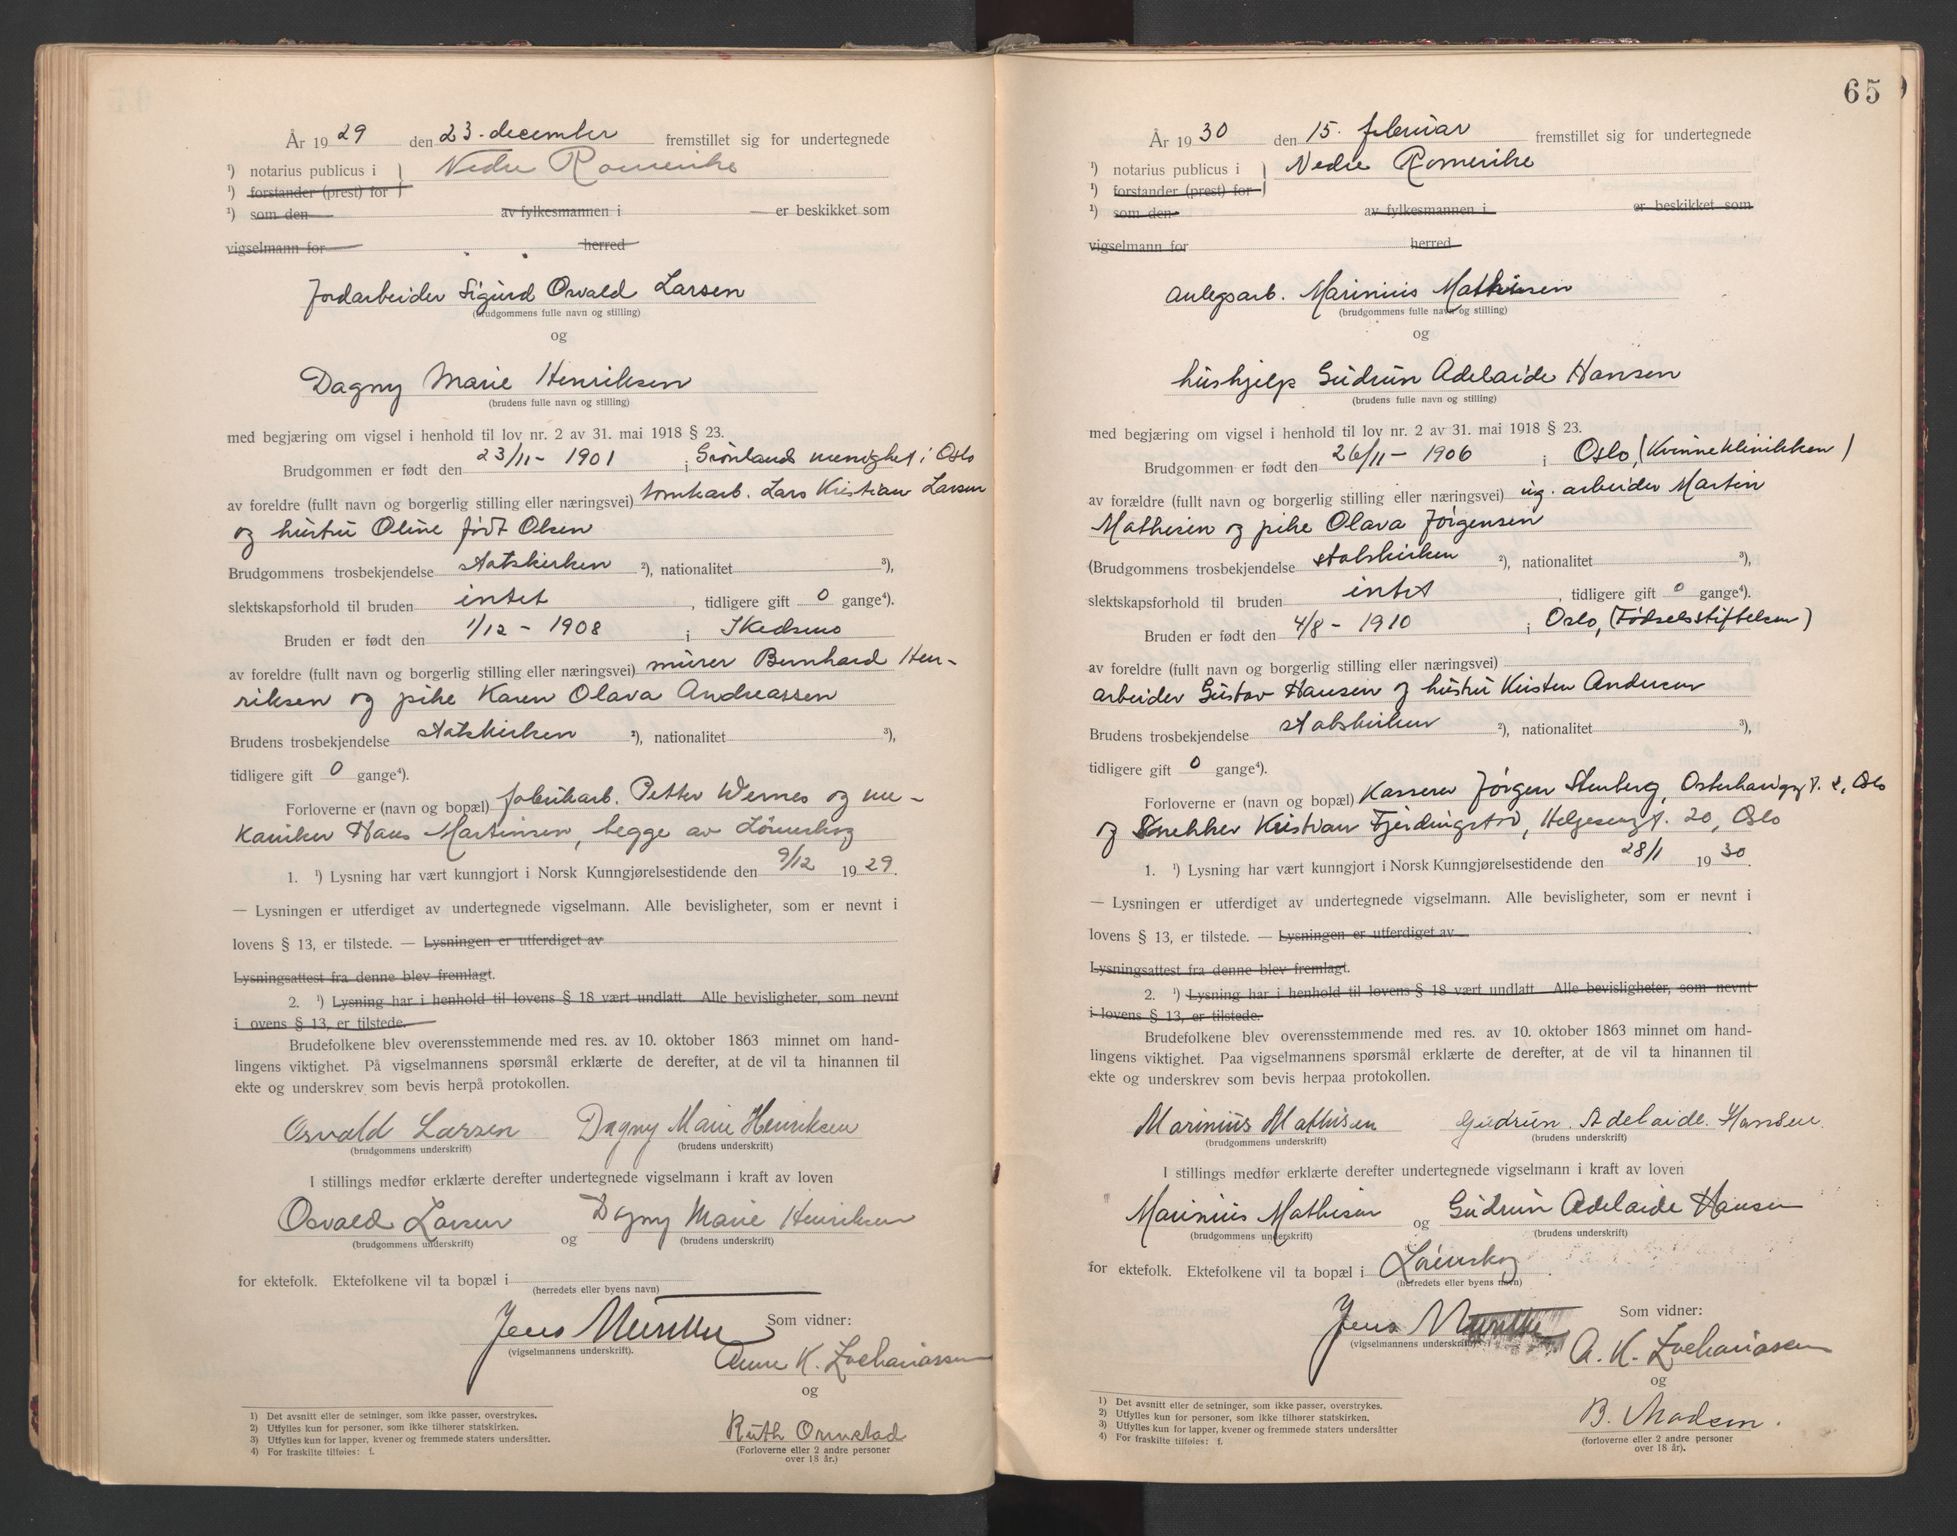 År 1929 den 23. december fremstillet sig for undertegnede
¹) notarius publicus i Nedre Romerike
¹) forstander (prest) for
¹) som den av fylkesmannen i er beskikket som
vigselmann for herred
Jordarbeider Sigurd Osvald Larsen
(brudgommens fulle navn og stilling)
og
Dagny Marie Henriksen
(brudens fulle navn og stilling)
med begjæring om vigsel i henhold til lov nr. 2 av 31. mai 1918 § 23.
Brudgommen er født den 23/11 - 1901 i Grønlands menighet i Oslo
av foreldre (fullt navn og borgerlig stilling eller næringsvei) tomtearb. Lars Kristian Larsen
og hustru Oline født Olsen
Brudgommens trosbekjendelse statskirken ²), nationalitet ³),
slektskapsforhold til bruden intet, tidligere gift 0 gange⁴).
Bruden er født den 1/12 - 1908 i Skedsmo
av foreldre (fullt navn og borgerlig stilling eller næringsvei) murer Bernhard Hen-
riksen og pike Karen Olava Andreassen
Brudens trosbekjendelse statskirken ²), nationalitet ³),
tidligere gift 0 gange⁴).
Forloverne er (navn og bopæl) fabrikarb. Petter Wernes og me-
kaniker Hans Martinsen, begge av Lørenskog
1. ¹) Lysning har vært kunngjort i Norsk Kunngjørelsestidende den 9/12 1929.
— Lysningen er utferdiget av undertegnede vigselmann. Alle bevisligheter, som er nevnt i
lovens § 13, er tilstede. — Lysningen er utferdiget av
Lysningsattest fra denne blev fremlagt.
2. ¹) Lysning har i henhold til lovens § 18 vært undlatt. Alle bevisligheter, som nevnt
i ovens § 13, er tilstede.
Brudefolkene blev overensstemmende med res. av 10. oktober 1863 minnet om hand-
lingens viktighet. På vigselmannens spørsmål erklærte de derefter, at de vil ta hinannen til
ekte og underskrev som bevis herpå protokollen.
Osvald Larsen Dagny Marie Henriksen
(brudgommens underskrift) (brudens underskrift)
I stillings medfør erklærte derefter undertegnede vigselmann i kraft av loven
Osvald Larsen og Dagny Marie Henriksen
(brudgommens underskrift) (brudens underskrift)
for ektefolk. Ektefolkene vil ta bopæl i
(herredets eller byens navn)
Jens Som vidner:
(vigselmannens underskrift).
Anne K. Zachariassen
og
Ruth Ormstad
(Forloverne eller 2 andre personer
over 18 år.)
1) Det avsnitt eller de setninger, som ikke passer, overstrykes.
2) Utfylles kun for personer, som ikke tilhører statskirken.
3) Utfylles kun for lapper, kvener og fremmede staters undersåtter.
4) For fraskilte tilføies: f.
65
År 1930 den 15. februar fremstillet sig for undertegnede
¹) notarius publicus i Nedre Romerike
¹) forstander (prest) for
¹) som den av fylkesmannen i er beskikket som
vigselmann for herred
Anlegsarb. Marinius Mathisen
(brudgommens fulle navn og stilling)
og
hushjelp Gudrun Adelaide Hansen
(brudens fulle navn og stilling)
med begjæring om vigsel i henhold til lov nr. 2 av 31. mai 1918 § 23.
Brudgommen er født den 26/11 - 1906 i Oslo, (Kvinneklinikken)
av forældre (fullt navn og borgerlig stilling eller næringsvei) ug. arbeider Martin
Mathisen og pike Olava Jørgensen
(Brudgommens trosbekjendelse statskirken ²), nationalitet ³),
slektskapsforhold til bruden intet, tidligere gift 0 gange⁴).
Bruden er født den 4/8 - 1910 i Oslo, (Fødselsstiftelsen)
av foreldre (fullt navn og borgerlig stilling eller næringsvei)
arbeider Gustav Hansen og hustru Kristen Andersen
Brudens trosbekjendelse statskirken ²), nationalitet ³),
tidligere gift 0 gange⁴).
Forloverne er (navn og bopæl) Kasserer Jørgen Stenberg, Oslo
og Snekker Kristian Fjerdingstad, Helgesensgt. 20, Oslo
1. ¹) Lysning har vært kunngjort i Norsk Kunngjørelsestidende den 28/1 1930.
— Lysningen er utferdiget av undertegnede vigselmann. Alle bevisligheter, som er nevnt i
lovens § 13, er tilstede. — Lysningen er utferdiget av
Lysningsattest fra denne blev fremlagt.
2. ¹) Lysning har i henhold til lovens § 18 vært undlatt Alle bevisligheter, som nevnt
i lovens § 13, er tilstede.
Brudefolkene blev overensstemmende med res. av 10. oktober 1863 minnet om hand-
lingens viktighet. Paa vigselmannens spørsmål erklærte de derefter, at de vil ta hinannen til
ekte og underskrev som bevis herpaa protokollen.
Marinius Mathisen Gudrun Adelaide Hansen.
(brudgommens underskrift) (brudens underskrift)
I stillings medfør erklærte derefter undertegnede vigselmann i kraft av loven
Marinius Mathisen og Gudrun Adelaide Hansen
(brudgommens underskrift) (brudens underskrift)
for ektefolk. Ektefolkene vil ta bopæl i Lørenskog
(herredets eller byens navn)
Jens Som vidner:
(vigselmannens underskrift)
A. K. Zachariassen
og
B. Madsen.
(forloverne eller 2 andre personer
over 18 år).
1) Det avsnitt eller de setninger, som ikke passer, overstrykes.
2) Utfylles kun for personer, som ikke tilhører statskirken.
3) Utfylles kun for lapper, kvener og fremmede staters undersåtter
4) For fraskilte tilføies: f.